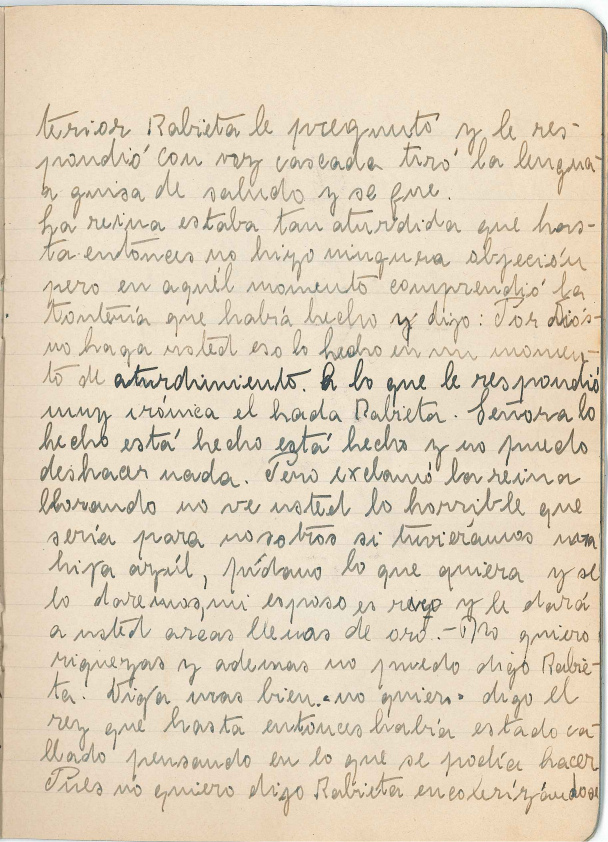 terior Rabieta le preguntó y le res-
pondió con voz cascada tiró la lengua
a guisa de saludo y se fue.
La reina estaba tan aturdida que has-
ta entónces no hizo ninguna objeción
pero en aquél momento comprendió la
tontería que habiá hecho y dijo: Por diós-
no haga usted eso lo hecho en un momen-
to de aturdimiento. A lo que le respondió
muy irónica el hada Rabieta. Señora lo
hecho está hecho está hecho y no puedo
deshacer nada. Pero exclamó la reina
llorando no ve usted lo horrible que
sería para nosotros si tuvierámos una
hija azúl, pídano lo que quiera y se
lo daremos, mi esposo es rey y le dará
a usted arcas llenas de oro. - No quiero
riquezas y ademas no puedo digo Rabie-
ta. Diga mas bien "no quiero" digo el
rey que hasta entonces había estado ca-
llado pensando en lo que se podía hacer
Pues no quiero digo Rabieta encolerizándose